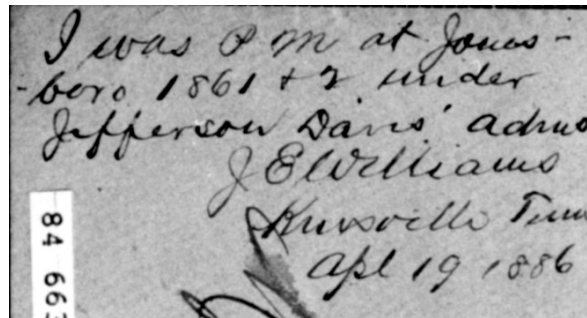 I was P M at Jones-
-boro 1861 & 2 under
Jefferson Davis' admn
J E Williams
Knoxville Tenn
Apl 19 1886
84 663